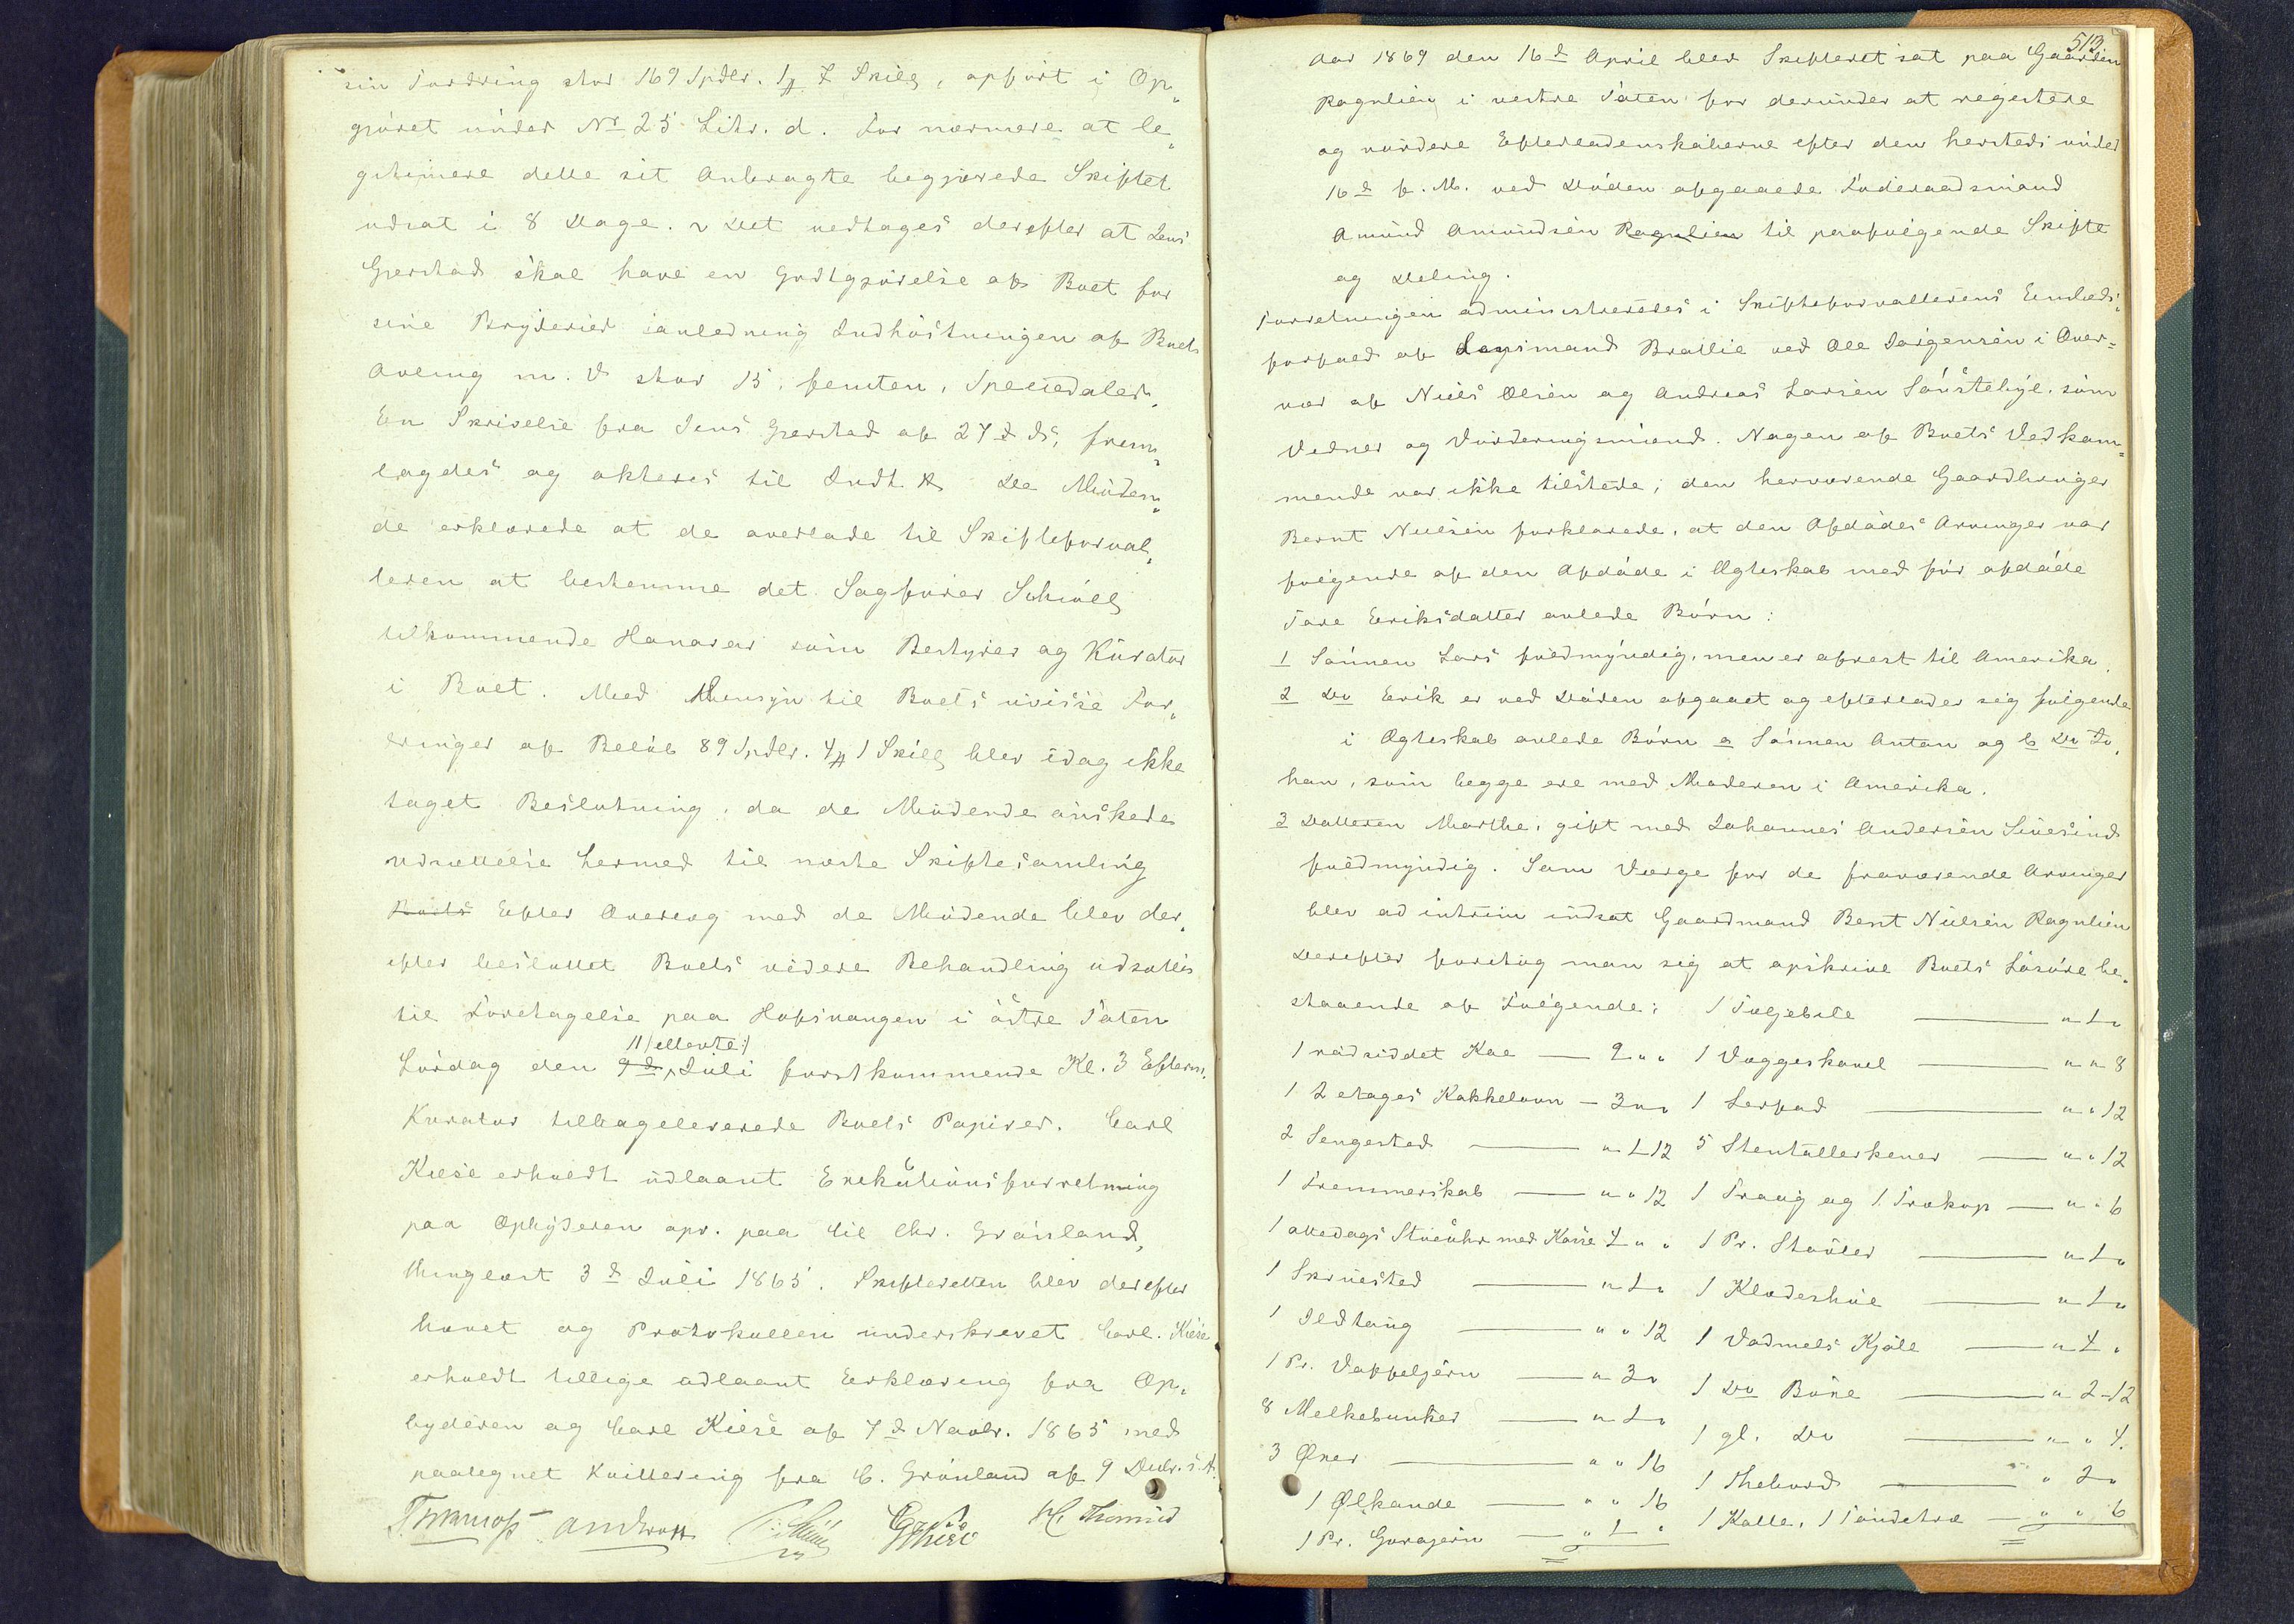 sin Fordring stor 169 Spdlr. 1 # 7 Skill, opført i Op„
gjøret under No 25 Litr. d. For nærmere at le„
gitimere dette sit Anbragte begjærede Skiftet
udsat i 8 Dage. Det vedtages derefter at Jens
Gjerstad skal have en Godtgjørelse af Boet for
sine Bryderier ianledning Indhøstningen af Boets
Avling m. V. stor 15, femten, Speciedaler.
En Skrivelse fra Jens Gjerstad af 27d ds, frem„
lagdes og akteres til Indt. De Møden„
de erklærede at de overlade til Skifteforval„
teren at bestemme det Sagfører Schiøll
tilkommende Honorar som Bestyrer og Kurator
i Boet. Med Hensyn til Boets uvisse For„
dringer af Beløb 89 Spdlr. 4 # 1 Skill blev idag ikke
taget Beslutning, da de Mødende ønskede
udsættelse hermed til næste Skiftesamling
Boets Efter Overlæg med de Mødende blev der„
efter besluttet Boets videre Behandling udsættes
til Foretagelse paa Hofsvangen i østre Toten
11/ellevte:/
Lørdag den 9d Juli førstkommende Kl. 3 Efterm.
Kurator tilbageleverede Boets Papirer. Carl
Kiese erholdt udlaant Exekutionsforretning
paa Ophyderen opr. paa til Chr. Grønland,
thinglæst 3d Juli 1865. Skifteretten blev derefter
hævet og Protokollen underskrevet. Carl. Kiese
erholdt tillige udlaant Erklæring fra Op„
byderen og Carl Kiese af 7d Novbr. 1865 med
paategnet Kvittering fra C. Grønland af 9 Decbr. s. A.
Aar 1869 den 16d April blev Skifteret sat paa Gaarden
513
Rognlien i vestre Toten for derunder at registere
og vurdere Efterladenskaberne efter den hersteds under
16d f. M. ved Døden afgaaede Føderaadsmand
Amund Amundsen Rognlien til paafølgende Skifte
og Deling.
Forretningen administreredes i Skifteforvalterens Embeds„
forfald af Lensmand Brallie ved Ole Jørgensen i Over=
vær af Niels Olsen og Andreas Larsen Sønsteby, som
Vidner og Vurderingsmænd. Nogen af Boets Vedkom=
mende var ikke tilstede; den herværende Gaardbruger
Bernt Nielsen forklarede, at den Afdødes Arvinger var
følgende af den Afdøde i Ægteskab med før afdøde
Tore Eriksdatter avlede Børn:
1 Sønnen Lars fuldmyndig, men er afrest til Amerika.
2 Do Erik er ved Døden afgaaet og efterlader sig følgende
i Ægteskab avlede Børn a Sønnen Anton og b Do Jo„
han, som begge ere med Moderen i Amerika.
3 Datteren Marthe, gift med Johannes Andersen Sivesind
fuldmyndig. Som Værge for de fraværende Arvinger
blev ad intrim indsat Gaardmand Bent Nielsen Rognlien
Derefter foretog man sig at opskrive Boets Løsøre be„
staaende af Følgende: 1 Tæljebile — „ 1 „
1 rødsiddet Koe — 9 „ „ 1 Væggeskavel — „ „ 8
1 2 etages Kakkelovn — 3 „ „ 1 Lerfad — „ „ 12
2 Sengested — „ 1 12 5 Stentallerkener — „ „ 12
1 Fremmerskab — „ „ 12 1 Traug og 1 Trækop — „ „ 6
1 ottedags Stueuhr med Kasse 4 „ „ 1 Pr. Støvler — „ 1 „
1 Skruestad — „ 1 „ 1 Klædeshue — „ 1 „
1 Ildtang — „ „ 12 1 Vadmels Kjole — „ 4 „
1 Pr. Vaffeljern — „ 3 „ 1 Do Buxe — „ 2 „ 12
8 Melkebunker — „ 1 „ 1 gl. Do — „ „ 4.
3 Øxer — „ „ 16 1 Thebord — „ 2 „
1 Ølkande — „ „ 16 1 Kalle, 1 Tøndetræ — „ „ 6
1 Pr. Gorojern — „ 1 „